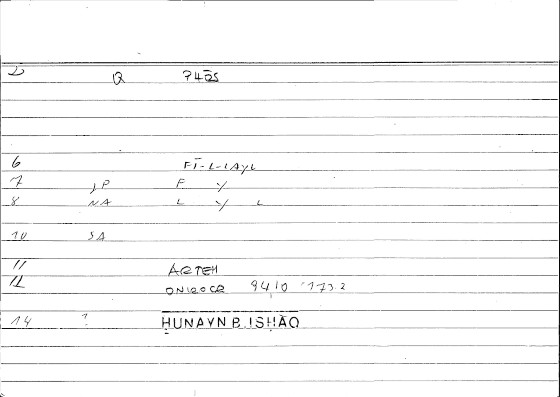 Q
6 FĪ-L-LAYL
7 JP F Y
8 NA L Y L
10 SA
11 ARTEM
12 ONIROCR 9410 1732
14 ? ḤUNAYN B. ISḤĀQ